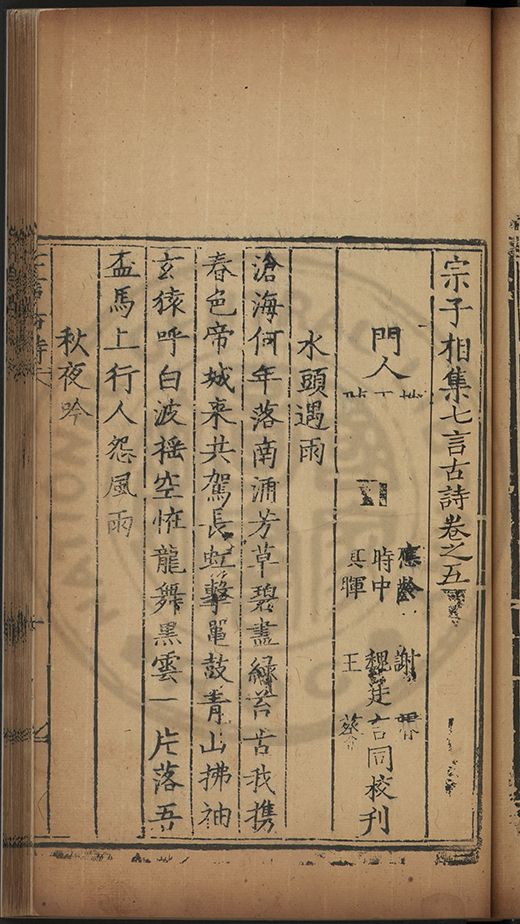 宗子相集七言古詩卷之五
門人
應龄 謝
時中 廷言同校刊
暉 王
水頭遇雨
滄海何年落南浦芳草碧盡緑苔古我携
春色帝城来共駕長虹擊鼉鼓青山拂袖
玄猿呼白波摇空恠龍舞黒雲一片落吾
盃馬上行人怨風雨
秋夜吟